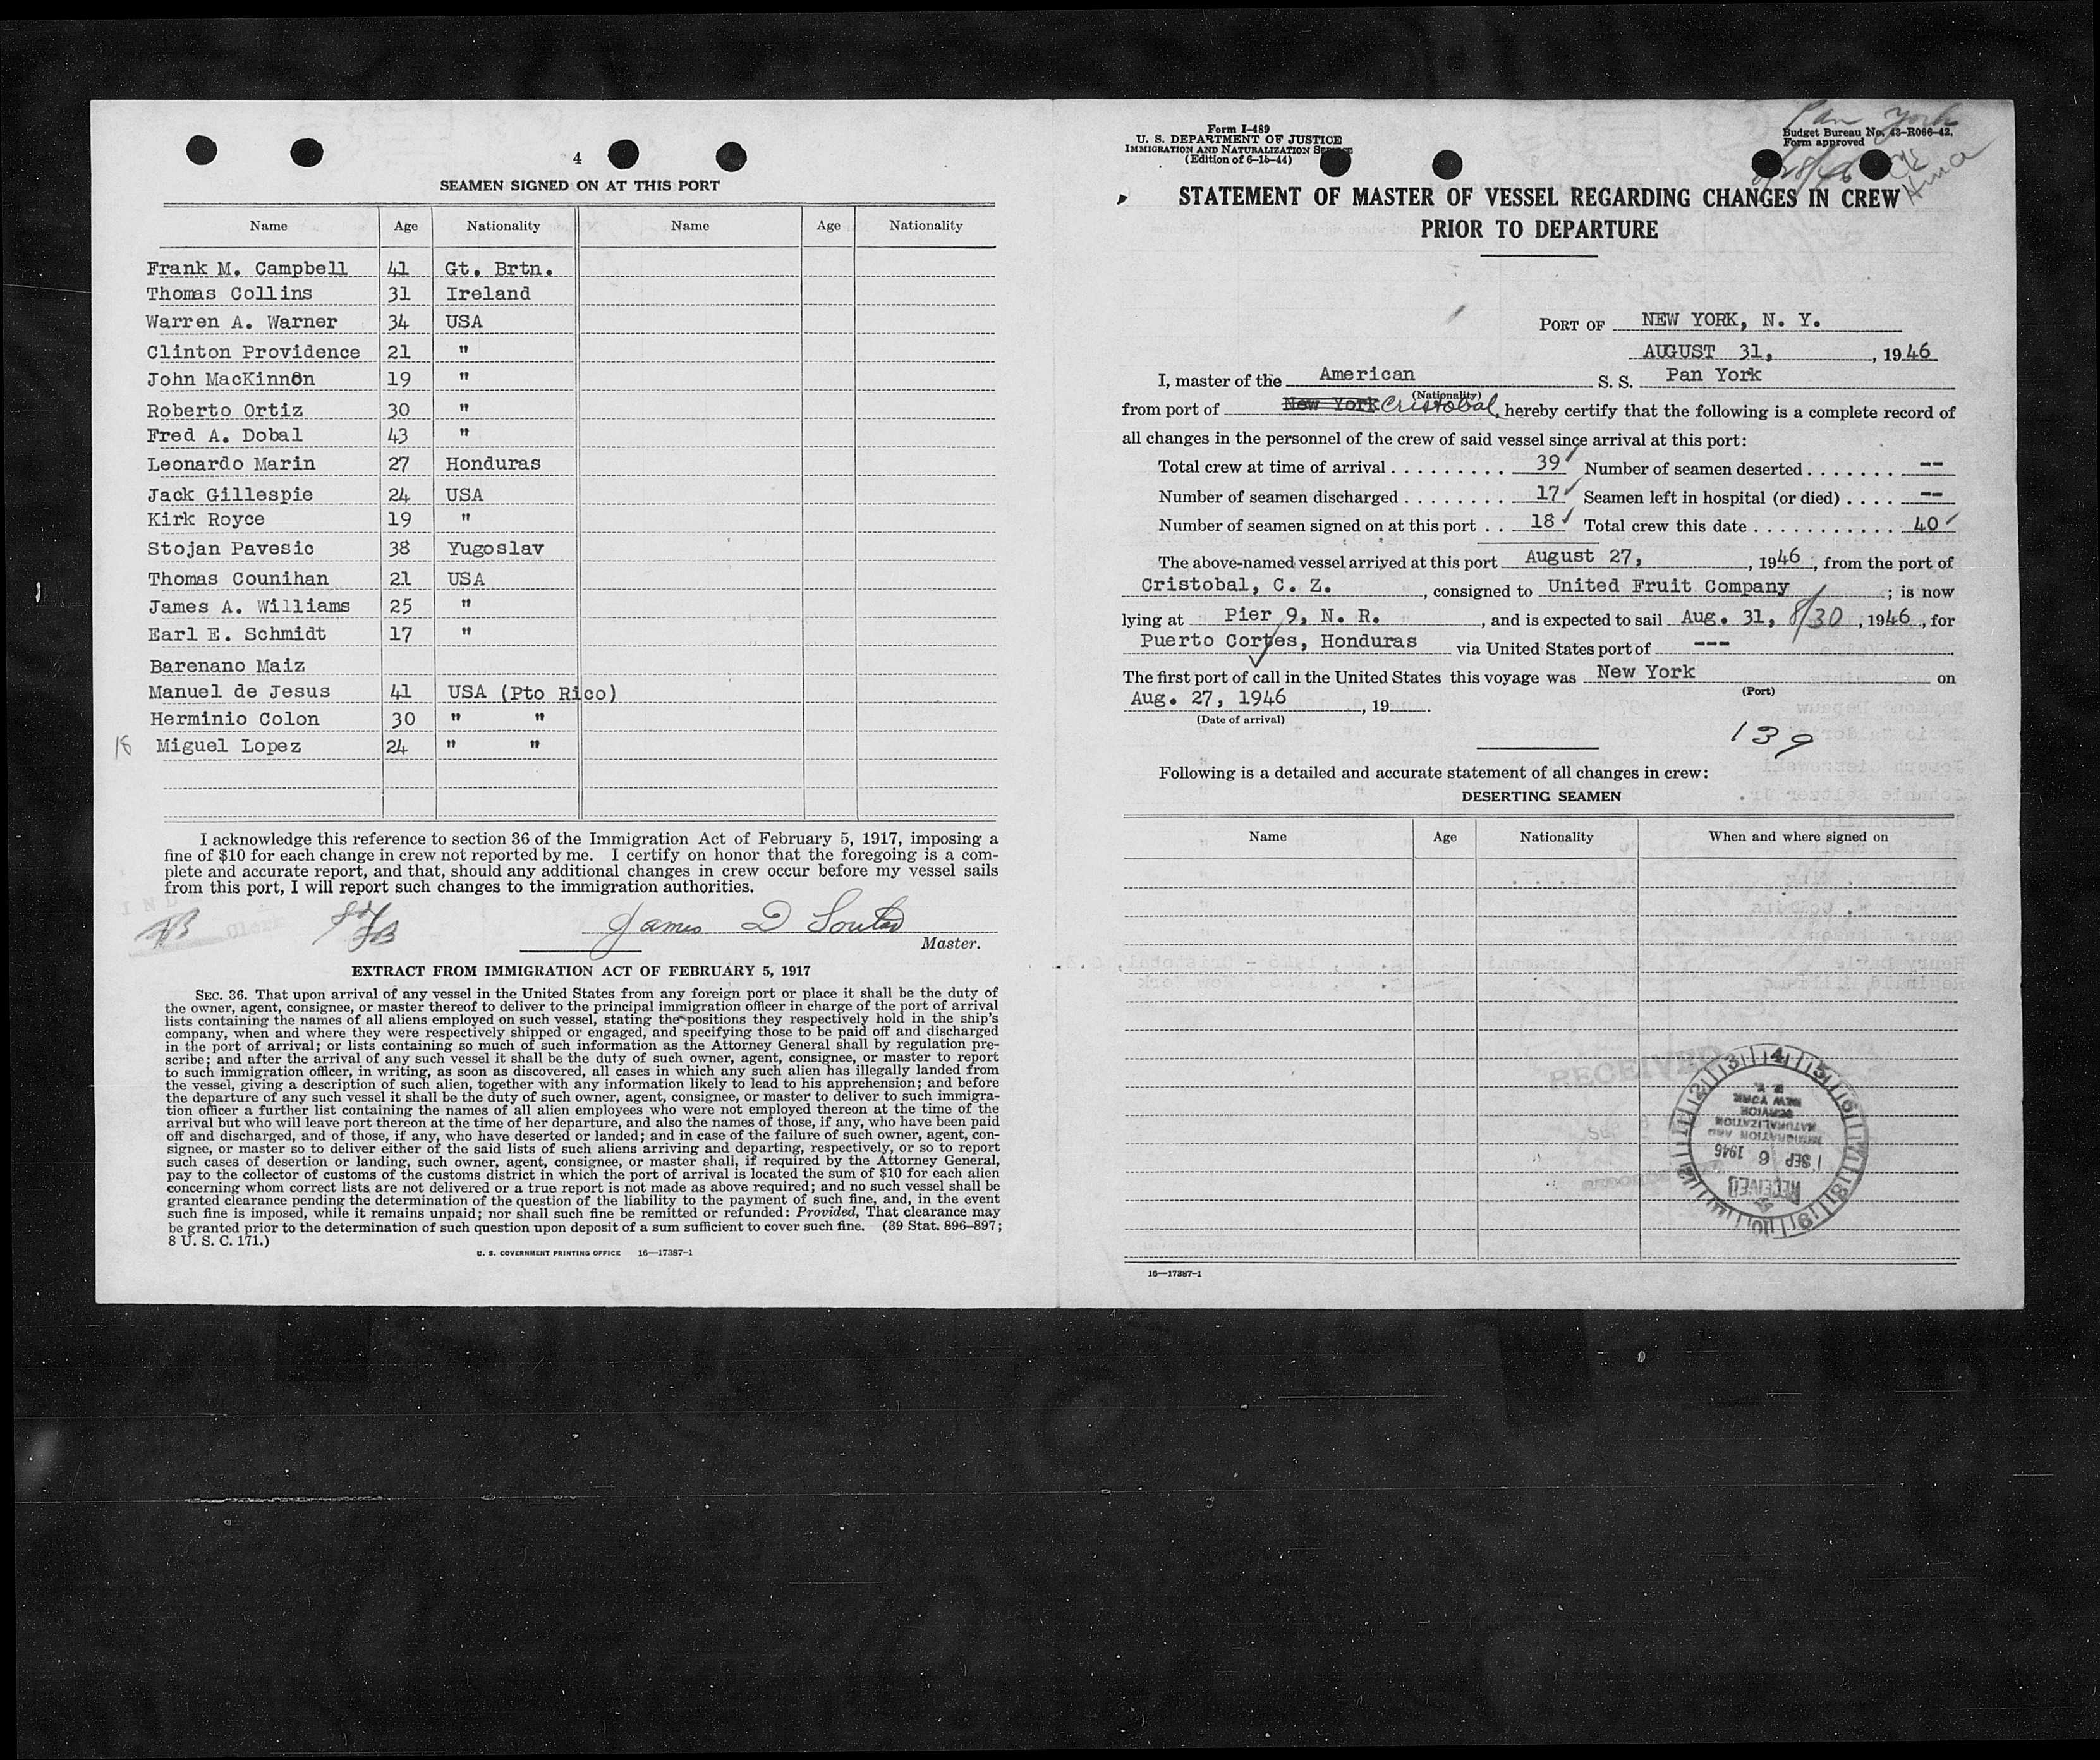 4
SEAMEN SIGNED ON AT THIS PORT
Name Age Nationality Name Age Nationality
Frank M. Campbell 41 Gt. Brtn.
Thomas Collins 31 Ireland
Warren A. Warner 34 USA
Clinton Providence 21 "
John MacKinnon 19 "
Roberto Ortiz 30 "
Fred A. Dobal 43 "
Leonardo Marin 27 Honduras
Jack Gillespie 24 USA
Kirk Royce 19 "
Stojan Pavesic 38 Yugoslav
Thomas Counihan 21 USA
James A. Williams 25 "
Earl E. Schmidt 17 "
Barenano Maiz
Manuel de Jesus 41 USA (Pto Rico)
Herminio Colon 30 " "
18 Miguel Lopez 24 " "
I acknowledge this reference to section 36 of the Immigration Act of February 5, 1917, imposing a
fine of $10 for each change in crew not reported by me. I certify on honor that the foregoing is a com-
plete and accurate report, and that, should any additional changes in crew occur before my vessel sails
from this port, I will report such changes to the immigration authorities.
James D Souter
Master.
EXTRACT FROM IMMIGRATION ACT OF FEBRUARY 5, 1917
SEC. 36. That upon arrival of any vessel in the United States from any foreign port or place it shall be the duty of
the owner, agent, consignee, or master thereof to deliver to the principal immigration officer in charge of the port of arrival
lists containing the names of all aliens employed on such vessel, stating the positions they respectively hold in the ship's
company, when and where they were respectively shipped or engaged, and specifying those to be paid off and discharged
in the port of arrival; or lists containing so much of such information as the Attorney General shall by regulation pre-
scribe; and after the arrival of any such vessel it shall be the duty of such owner, agent, consignee, or master to report
to such immigration officer, in writing, as soon as discovered, all cases in which any such alien has illegally landed from
the vessel, giving a description of such alien, together with any information likely to lead to his apprehension; and before
the departure of any such vessel it shall be the duty of such owner, agent, consignee, or master to deliver to such immigra-
tion officer a further list containing the names of all alien employees who were not employed thereon at the time of the
arrival but who will leave port thereon at the time of her departure, and also the names of those, if any, who have been paid
off and discharged, and of those, if any, who have deserted or landed; and in case of the failure of such owner, agent, con-
signee, or master so to deliver either of the said lists of such aliens arriving and departing, respectively, or so to report
such cases of desertion or landing, such owner, agent, consignee, or master shall, if required by the Attorney General,
pay to the collector of customs of the customs district in which the port of arrival is located the sum of $10 for each alien
concerning whom correct lists are not delivered or a true report is not made as above required; and no such vessel shall be
granted clearance pending the determination of the question of the liability to the payment of such fine, and, in the event
such fine is imposed, while it remains unpaid; nor shall such fine be remitted or refunded: Provided, That clearance may
be granted prior to the determination of such question upon deposit of a sum sufficient to cover such fine. (39 Stat. 896–897;
8 U. S. C. 171.)
U. S. GOVERNMENT PRINTING OFFICE 16—17387-1
Pan York
Form I-489
U. S. DEPARTMENT OF JUSTICE
IMMIGRATION AND NATURALIZATION SERVICE
(Edition of 6-15-44)
Budget Bureau No. 43-R066-42.
Form approved
STATEMENT OF MASTER OF VESSEL REGARDING CHANGES IN CREW
PRIOR TO DEPARTURE
PORT OF NEW YORK, N. Y.
AUGUST 31, , 1946
I, master of the American S. S. Pan York
(Nationality)
from port of New York Cristobal, hereby certify that the following is a complete record of
all changes in the personnel of the crew of said vessel since arrival at this port:
Total crew at time of arrival . . . . . . . . . 39 Number of seamen deserted . . . . . . . --
Number of seamen discharged . . . . . . . . 17 Seamen left in hospital (or died) . . . . --
Number of seamen signed on at this port . . 18 Total crew this date . . . . . . . . . . . . 40
The above-named vessel arrived at this port August 27, , 1946, from the port of
Cristobal, C. Z. , consigned to United Fruit Company ; is now
lying at Pier 9, N. R. , and is expected to sail Aug. 31, 8/30, 1946, for
Puerto Cortes, Honduras via United States port of ---
The first port of call in the United States this voyage was New York on
(Port)
Aug. 27, 1946 , 19 .
(Date of arrival)
139
Following is a detailed and accurate statement of all changes in crew:
DESERTING SEAMEN
Name Age Nationality When and where signed on
RECEIVED
RECEIVED
SEP 6 1946
IMMIGRATION AND
NATURALIZATION
SERVICE
NEW YORK
N. Y.
16—17387-1